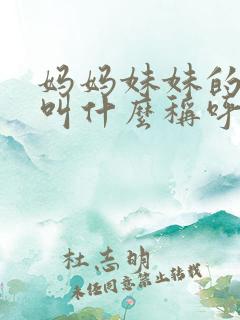 妈妈妹妹的
叫什麼稱呼
杜志明
未经同意禁止转载